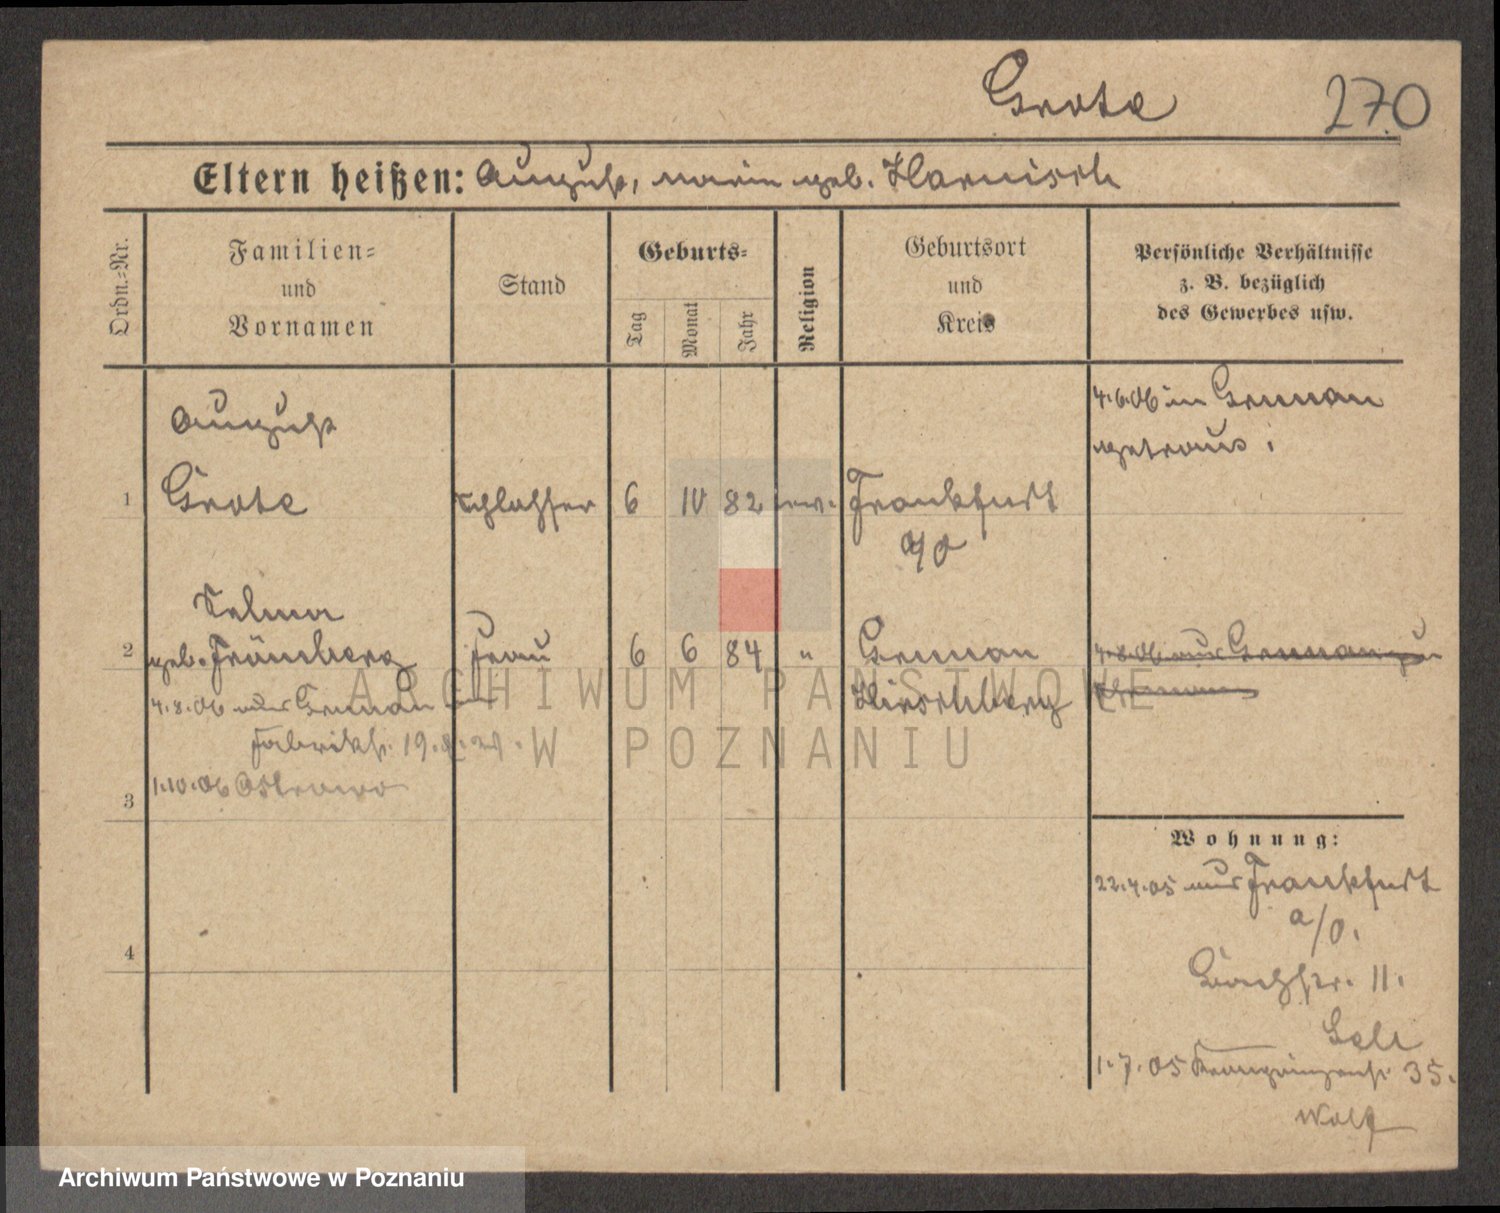 Grote 270
Eltern heißen: August, Marie geb. Harnisch
Ordn.-Nr.
Familien-
und
Vornamen
Stand
Geburts-
Tag
Monat
Jahr
Religion
Geburtsort
und
Kreis
Persönliche Verhältnisse
z. B. bezüglich
des Gewerbes usw.
August
1 Grote Schlosser 6 10 82 ev. Frankfurt
a/O
4.6.06 in Grunau
getraut.
Selma
2 geb. Frömberg Frau 6 6 84 " Grunau
Hirschberg
4.8.06 aus Grunau
4.8.06 aus Grunau
Fabrikstr. 19.
1.10.06 Ostrowo
3
4
Wohnung:
22.4.05 aus Frankfurt
a/O.
Bachstr. 11.
1.7.05 Kronprinzenstr. 35.
Wolf
ARCHIWUM PAŃSTWOWE
W POZNANIU
Archiwum Państwowe w Poznaniu